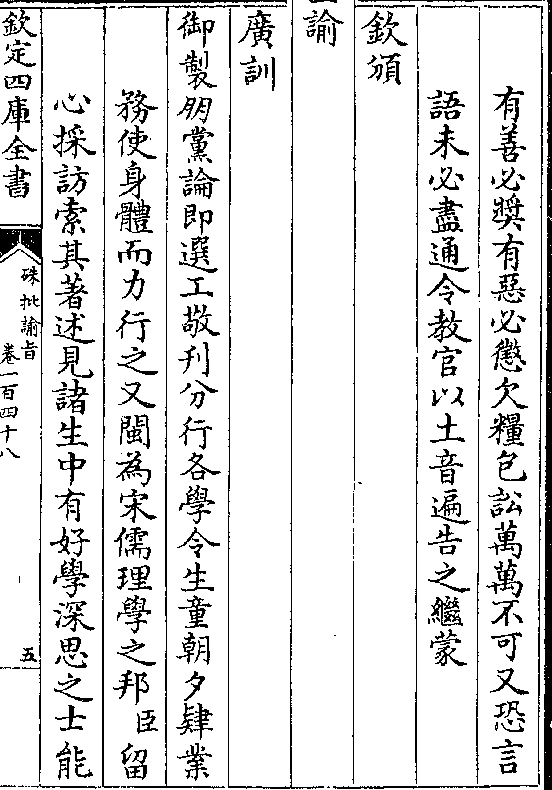 有善必獎有惡必懲欠糧包訟萬萬不可又恐言
語未必盡通令教官以土音遍告之繼蒙
欽頒
諭
廣訓
御製朋黨論即選工敬刊分行各學令生童朝夕肄業
務使身體而力行之又閩為宋儒理學之邦臣留
心採訪索其著述見諸生中有好學深思之士能
欽定四庫全書
硃批諭旨
卷一百四十八
五